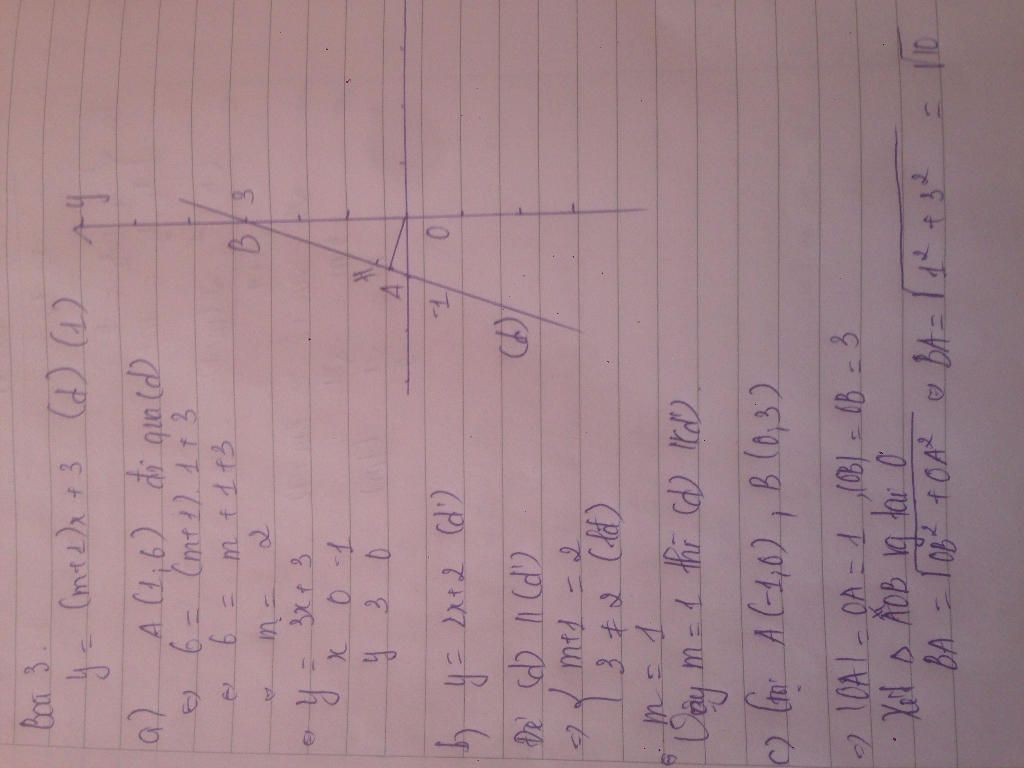 Bài 3.
y = (m+1)x + 3 (d) (1)
a) A(1,6) đi qua (d)
⇔ 6 = (m+1).1 + 3
⇔ 6 = m + 1 + 3
⇔ m = 2
⇔ y = 3x + 3
x 0 -1
y 3 0
y
B 3
H
A
-1
O
(d)
b) y = 2x + 2 (d')
Để (d) // (d')
⇒ { m+1 = 2
3 ≠ 2 (lđ)
⇔ m = 1
Vậy m = 1 thì (d) // (d')
c) Gọi A(-1,0), B(0,3)
⇒ |OA| = OA = 1, |OB| = OB = 3
Xét Δ AOB vg tại O
BA = √OB² + OA² ⇔ BA = √1² + 3² = √10